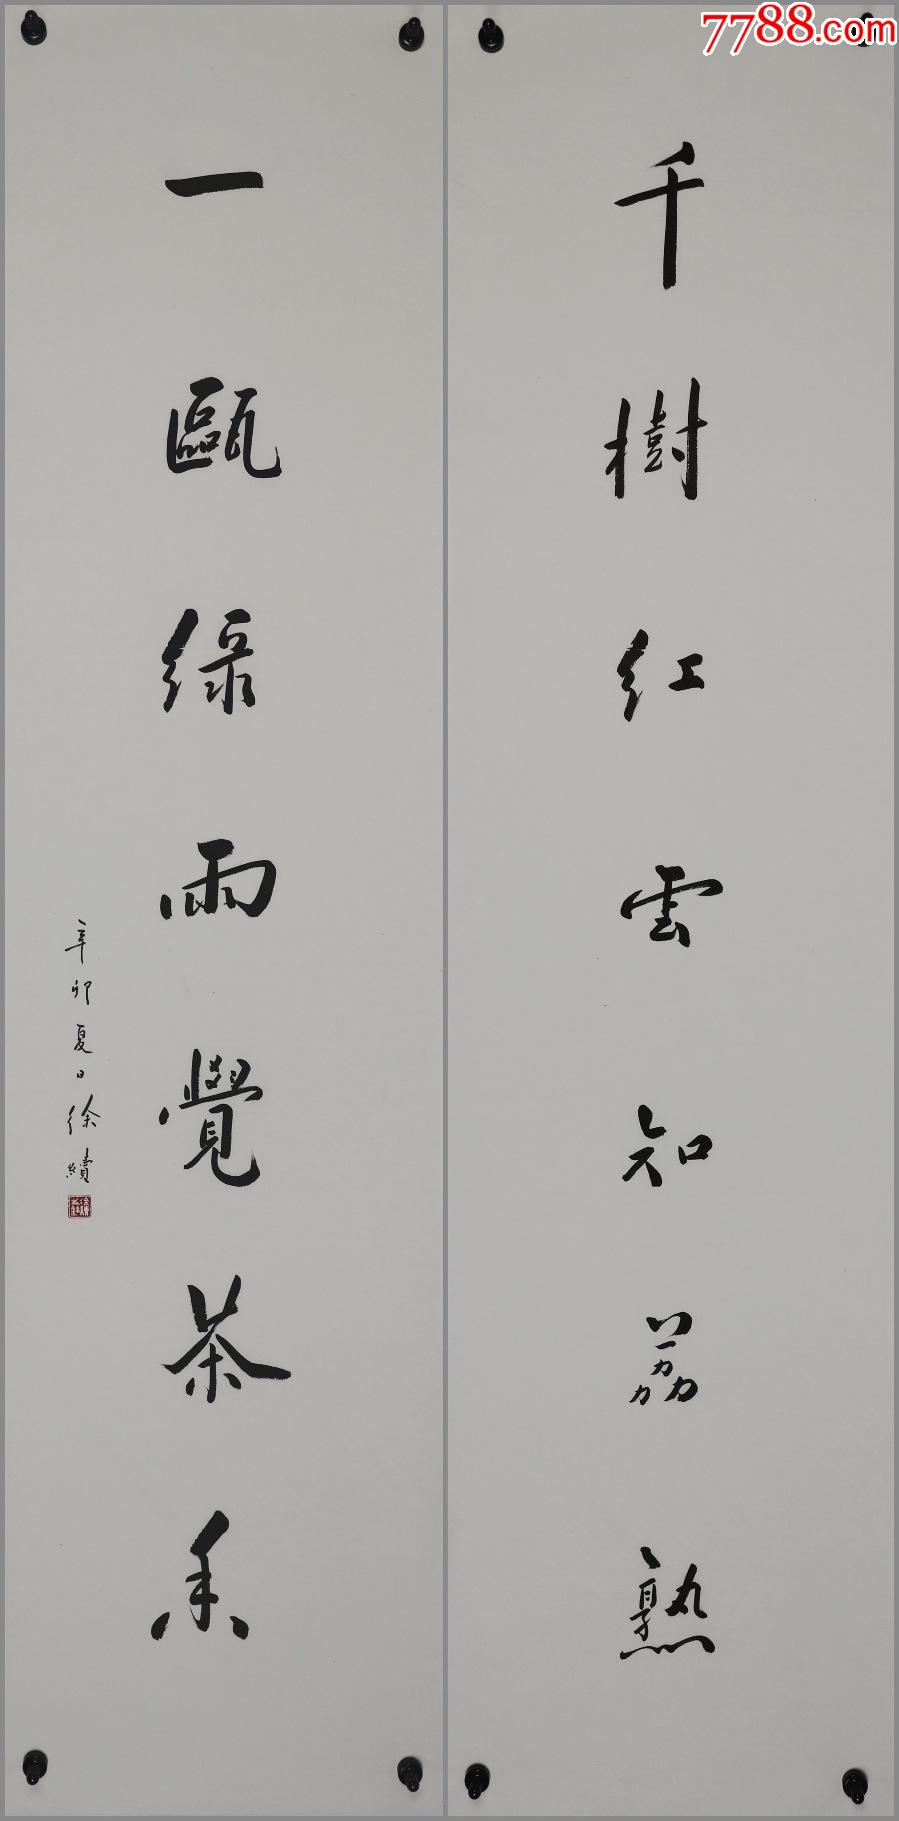 7788.com
千樹红雲知荔熟
一甌綠雨覺茶香
辛卯夏日徐續